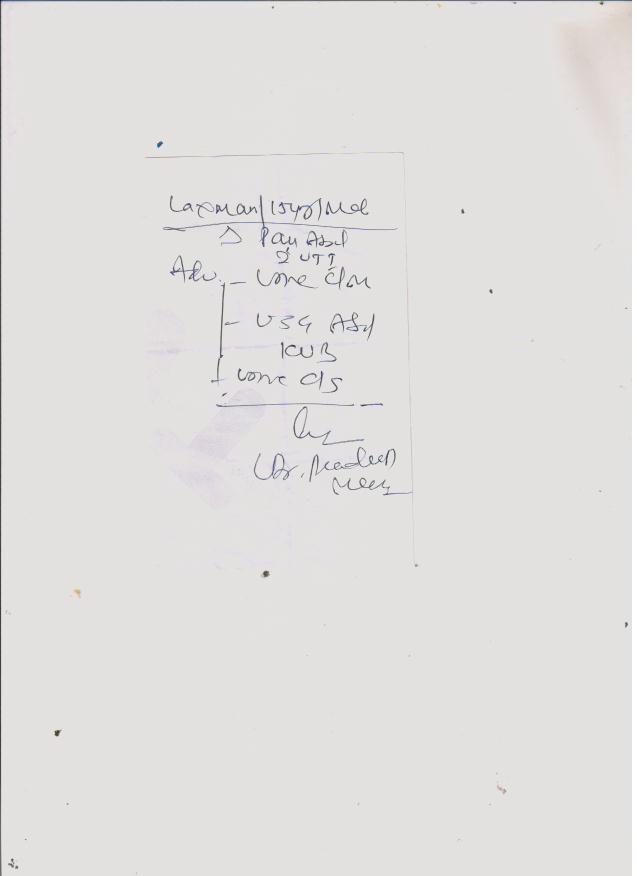 Laxman/15yr/Male
Pain Abd
? UTI
Adv. - Urine C/M
- USG Abd
KUB
- Urine C/S
(Dr. Pradeep